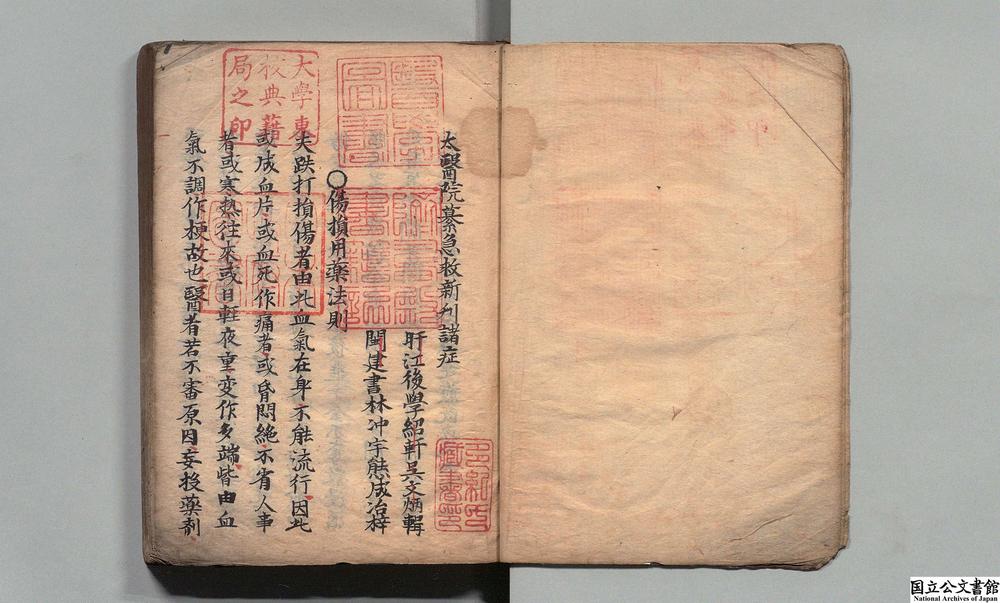 太醫院纂急救新刋諸症
盱江後學紹軒吳文炳輯
閩建書林冲宇熊成冶梓
〇傷損用藥法則
夫跌打損傷者由此血氣在身不能流行因此
或成血片或血死作痛者或昏悶絶不省人事
者或寒熱往來或日輕夜重变作多端皆由血
氣不調作梗故也醫者若不審原因妄投藥剤
大學東
校典籍
局之印
国立公文書館
National Archives of Japan